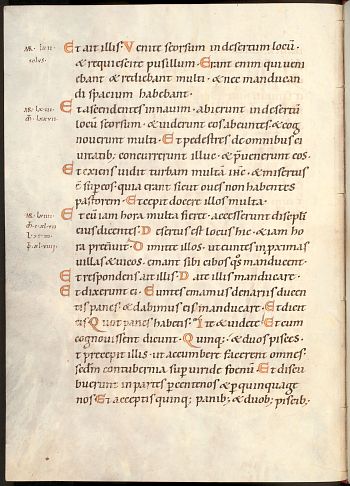 Et ait illis. Venite seorsum indesertum locū.
& requiescite pusillum. Erant enim qui veni
ebant & rediebant multi. & nec manducan
di spacium habebant.
Et ascendentes innavim. abierunt indesertū
locū seorsum. & viderunt eos abeuntes & cog
noverunt multi. Et pedestres deomnibus ci
vitatib; concurrerunt illuc. & p̄venerunt eos.
Et exiens vidit turbam multā ihc. & misertus
ē sup eos. quia erant sicut oves non habentes
pastorem. Et cepit docere illos multa.
Et cū iam hora multa fieret. accesserunt discipli
eius dicentes. Desertus est locus hic. & iam ho
ra pretivit. Dimitte illos. ut euntes inproximas
villas & vicos. emant sibi cibos qs manducent.
Et respondens ait illis. Date illis manducare.
Et dixerunt ei. Euntes emamus denariis ducen
tis panes. & dabimus eis manducare. Et dicit
eis. Quot panes habetis. Ite & videte. Et cum
cognovissent dicunt. Quinq; & duos pisces.
& precepit illis. ut accumbere facerent omnes.
sedm contubernia sup viride foenū. Et discu
buerunt inpartes p centenos & p quinquage
nos. Et acceptis quinq; panib; & duob; piscib;